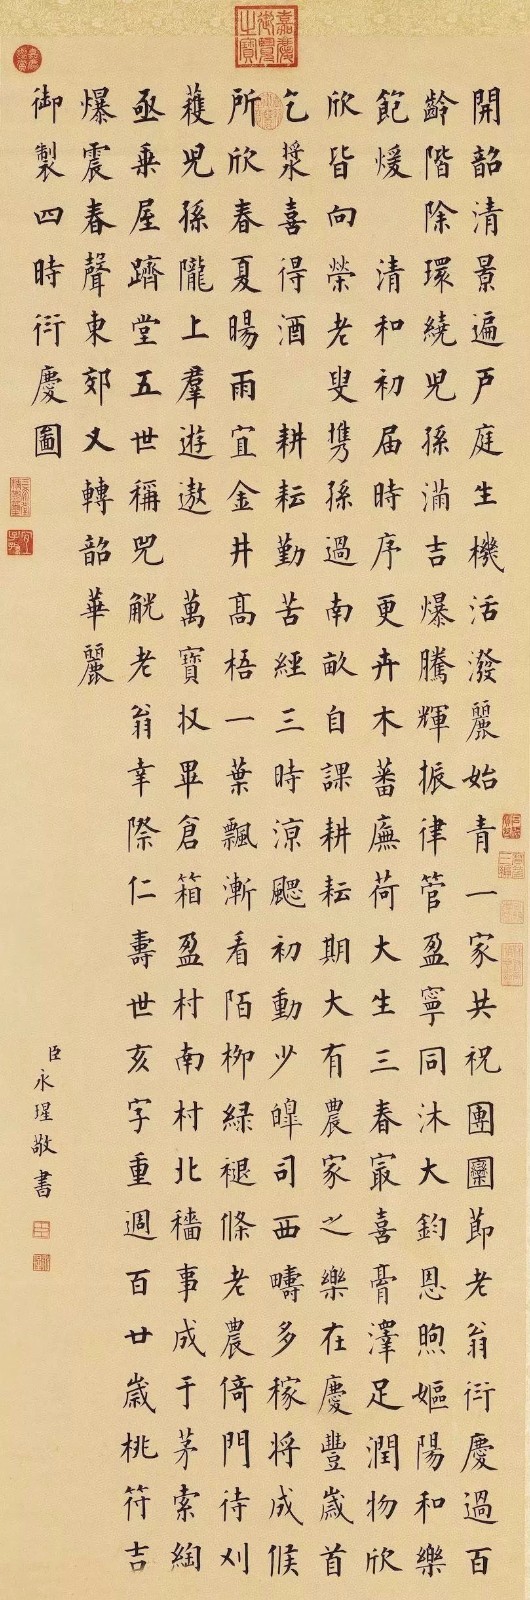 嘉慶御覽之寶
開韶清景遍戶庭生機活潑麗始青一家共祝團圞節老翁衍慶過百
齡階除環繞兒孫滿吉爆騰輝振律管盈寧同沐大鈞恩煦嫗陽和樂
飽煖 清和初屆時序更卉木蕃廡荷大生三春冣喜膏澤足潤物欣
欣皆向榮老叟携孫過南畝自課耕耘期大有農家之樂在慶豐歲首
乞漿喜得酒 耕耘勤苦經三時涼颸初動少皞司西疇多稼將成候
所欣春夏暘雨宜金井髙梧一葉飄漸看陌柳綠褪條老農倚門待刈
穫兒孫隴上羣遊遨 萬寶収畢倉箱盈村南村北穡事成于茅索綯
亟乘屋躋堂五世稱兕觥老翁幸際仁壽世亥字重週百廿歲桃符吉
爆震春聲東郊又轉韶華麗
御製四時衍慶圖
臣永瑆敬書